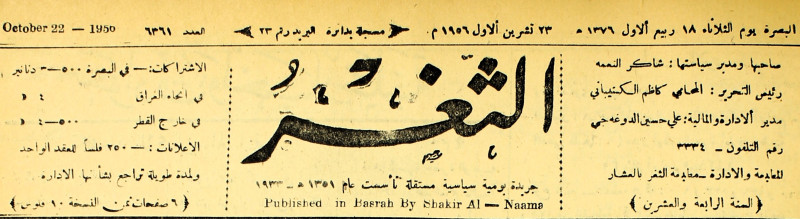 البصرة يوم الثلاثاء ١٨ ربيع الاول ١٣٧٦ هـ
٢٣ تشرين الاول ١٩٥٦ م.
مسجلة بدائرة البريد رقم ٢٣
العدد ٦٣٦١
October 22 — 1956
صاحبها ومدير سياستها : شاكر النعمه
رئيس التحرير : المحامي كاظم الكنيباني
مدير الادارة والمالية : علي حسين الدوغه جي
رقم التلفون — ٣٣٣٤
المطبعة والادارة — مطبعة الثغر بالعشار
﴿ السنة الرابعة والعشرين ﴾
الثغر
جريدة يومية سياسية مستقلة تأسست عام ١٣٥١ هـ — ١٩٣٣
Published in Basrah By Shakir Al — Naama
الاشتراكات :— في البصرة ٥٠٠— دنانير
في انحاء العراق ٤ »
في خارج القطر ٥٠٠— ٤ »
الاعلانات : — ٢٥٠ فلساً للعقد الواحد
ولمدة طويلة تراجع بشأنها الادارة
﴿ ٦ صفحات ثمن النسخة ١٠ فلوس ﴾